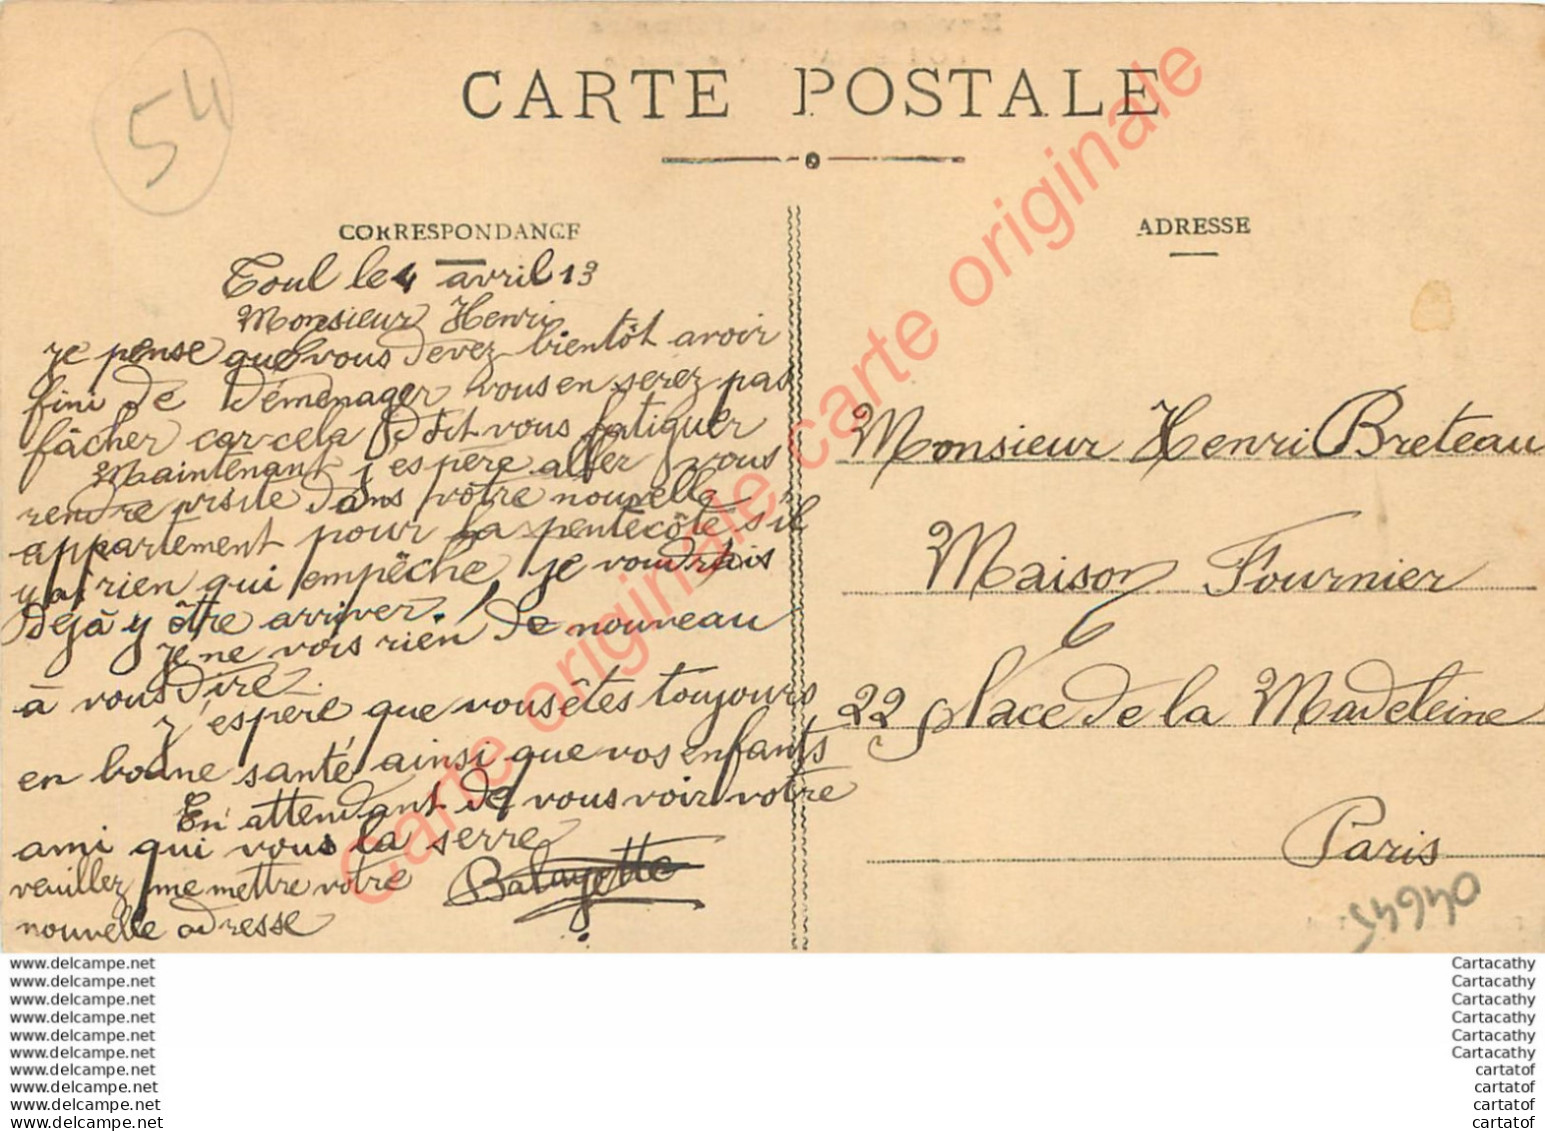 54
CARTE POSTALE
CORRESPONDANCE
Toul le 4 avril 13
Monsieur Henri
je pense que vous devez bientôt avoir
fini de déménager vous en serez pas
fâcher car cela doit vous fatiguer
Maintenant j'espère aller vous
rendre visite dans vôtre nouvelle
appartement pour la pentecôte s'il
y a rien qui empêche, je voudrais
déjà y être arriver.
je ne vois rien de nouveau
à vous dire.
j'espère que vous êtes toujours
en bonne santé ainsi que vos enfants
En attendant de vous voir votre
ami qui vous la serre
veuillez me mettre votre
nouvelle adresse
ADRESSE
Monsieur Henri Breteau
Maison Fournier
22 place de la Madeleine
Paris
54940
Carte originale carte originale carte originale
www.delcampe.net
www.delcampe.net
www.delcampe.net
www.delcampe.net
www.delcampe.net
www.delcampe.net
www.delcampe.net
www.delcampe.net
www.delcampe.net
www.delcampe.net
Cartacathy
Cartacathy
Cartacathy
Cartacathy
Cartacathy
Cartacathy
cartatof
cartatof
cartatof
cartatof